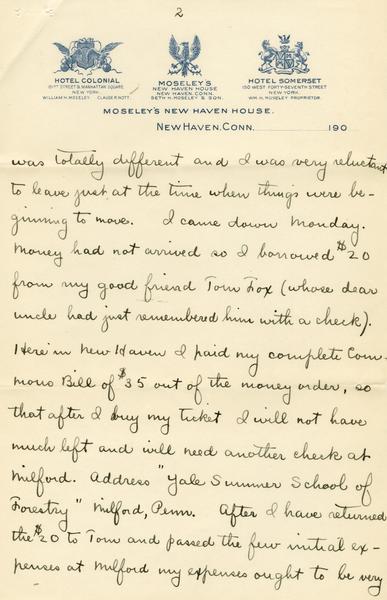 2
HOTEL COLONIAL
81ST STREET & MANHATTAN SQUARE
NEW YORK.
WILLIAM H. MOSELEY. CLAUDE R. NOTT.
MOSELEY'S
NEW HAVEN HOUSE
NEW HAVEN, CONN.
SETH H. MOSELEY & SON.
HOTEL SOMERSET
150 WEST FORTY-SEVENTH STREET
NEW YORK.
WM. H. MOSELEY. PROPRIETOR.
MOSELEY'S NEW HAVEN HOUSE.
NEW HAVEN, CONN. 190
was totally different and I was very reluctant
to leave just at the time when things were be-
ginning to move. I came down Monday.
Money had not arrived so I borrowed $20
from my good friend Tom Fox (whose dear
uncle had just remembered him with a check).
Here in New Haven I paid my complete Com-
mons Bill of $35 out of the money order, so
that after I buy my ticket I will not have
much left and will need another check at
Milford. Address "Yale Summer School of
Forestry" Milford, Penn. After I have returned
the $20 to Tom and passed the few initial ex-
penses at Milford my expenses ought to be very